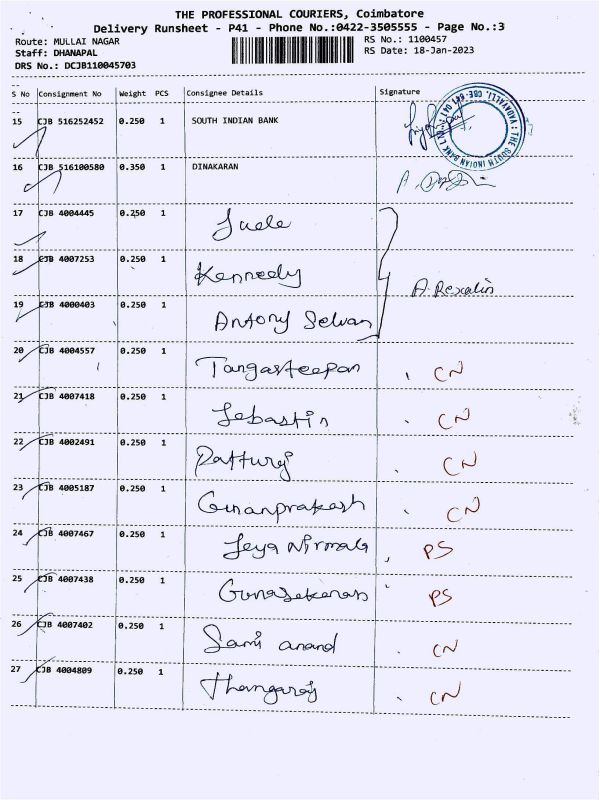 THE PROFESSIONAL COURIERS, Coimbatore
Delivery Runsheet - P41 - Phone No.:0422-3505555 - Page No.:3
Route: MULLAI NAGAR RS No.: 1100457
Staff: DHANAPAL RS Date: 18-Jan-2023
DRS No.: DCJB110045703
S No Consignment No Weight PCS Consignee Details Signature
15 CJB 516252452 0.250 1 SOUTH INDIAN BANK
16 CJB 516100580 0.350 1 DINAKARAN
17 CJB 4004445 0.250 1
18 CJB 4007253 0.250 1 Kennedy
A. Rexalin
19 CJB 4000403 0.250 1 Antony Selvan
20 CJB 4004557 0.250 1 Tangasteepan CN
21 CJB 4007418 0.250 1 Sebastin CN
22 CJB 4002491 0.250 1 CN
23 CJB 4005187 0.250 1 Gunanprakash CN
24 CJB 4007467 0.250 1 Jeya Nirmala PS
25 CJB 4007438 0.250 1 Gunasekaran PS
26 CJB 4007402 0.250 1 Sami anand CN
27 CJB 4004809 0.250 1 Thangaraj CN